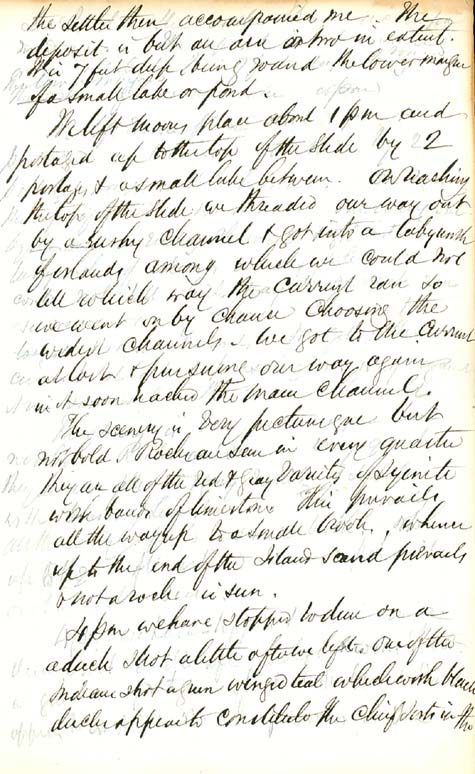 the settler then accompanied me. The
deposit is but an acre or two in extent.
It is 7 feet deep being round the lower margin
of a small lake or pond.
We left Moores place about 1 pm and
portaged up to the top of the Slide by 2
portages & a small lake between. On reaching
the top of the Slide we threaded our way out
by a rushy channel & got into a labyrinth
of islands among which we could not
tell which way the current ran so
we went on by chance choosing the
widest channels. We got to the current
at last & pursuing our way again
in it soon reached the main channel.
The scenery is very picturesque but
not bold. Rocks are seen in every quarter
they are all of the red & gray variety of syenite
with bands of limestone this prevails
all the way up to a small brook, whence
up to the end of the Island sand prevails
& not a rock is seen.
4 pm we have stopped to dine on a
a duck shot a little after we left. One of the
Indians shot a green winged teal which with black
ducks appear to constitute the chief sorts in the